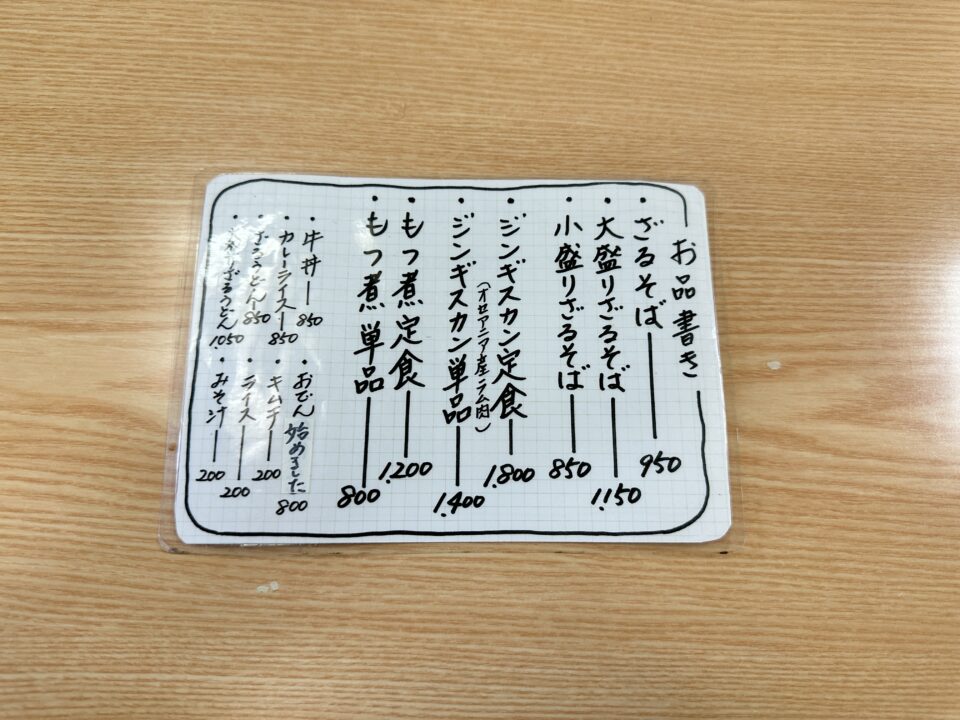 お品書き
・ざるそば―950
・大盛りざるそば―1,150
・小盛りざるそば―850
・ジンギスカン定食―1,800
(オセアニア産ラム肉)
・ジンギスカン単品―1,400
・もつ煮定食―1,200
・もつ煮単品―800
・牛丼―850
・カレーライス―850
・ざるうどん―850
ざるうどん 1,050
・おでん始めました 800
・キムチ―200
・ライス―200
・みそ汁―200